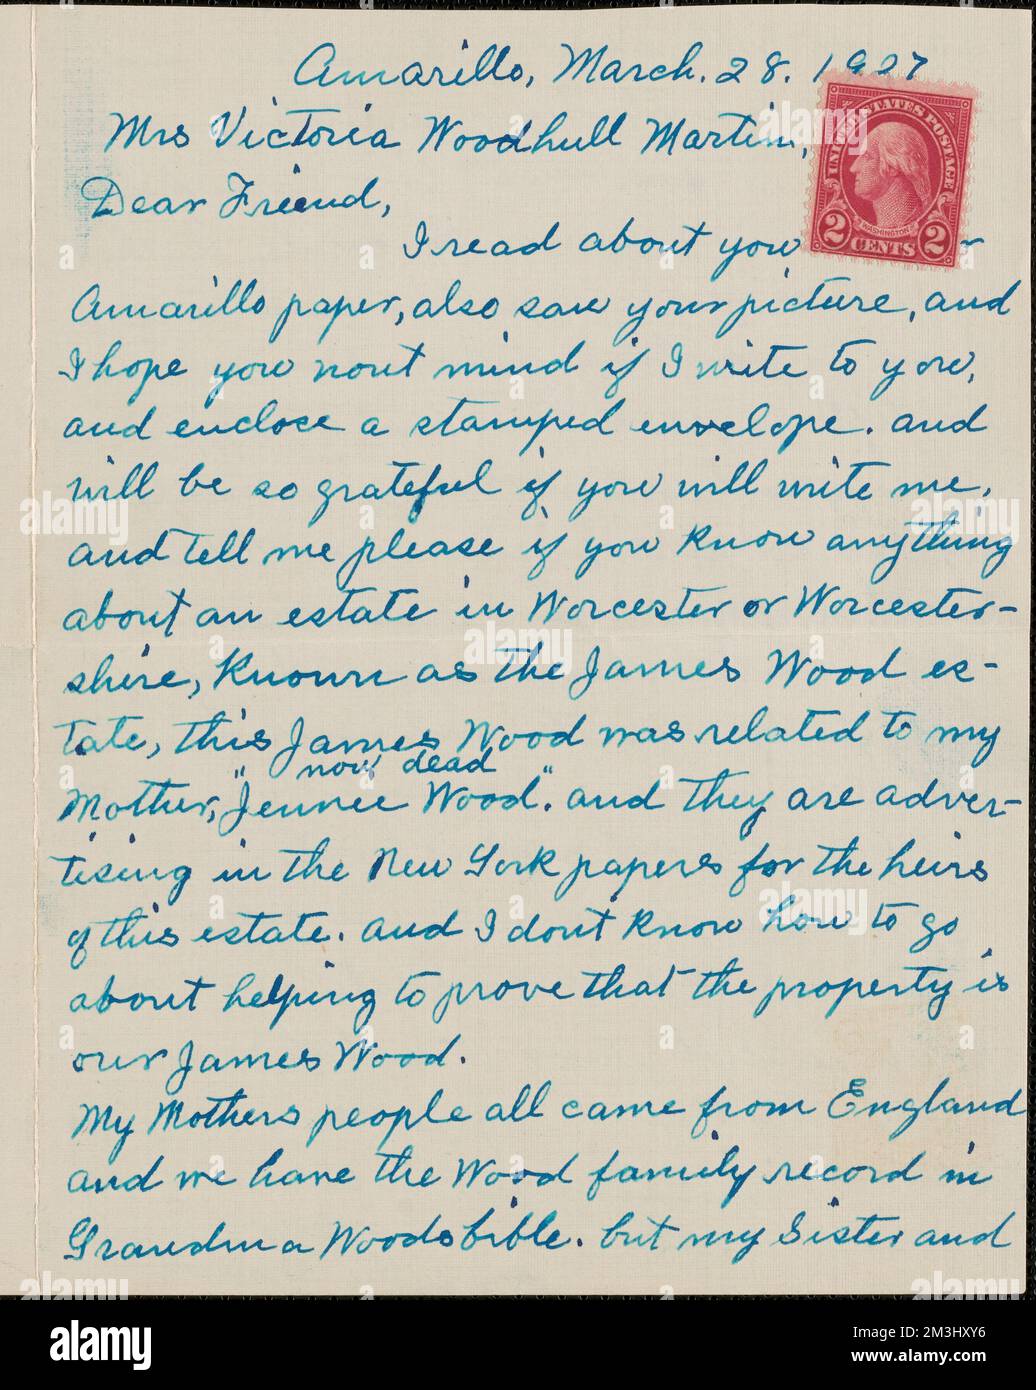 Amarillo, March. 28. 1927
Mrs Victoria Woodhull Martin,
UNITED STATES POSTAGE
WASHINGTON
2 CENTS 2
Dear Friend,
I read about you
Amarillo paper, also saw your picture, and
I hope you wont mind if I write to you,
and enclose a stamped envelope. and
will be so grateful if you will write me.
and tell me please if you know anything
about an estate in Worcester or Worcester-
shire, known as the James Wood es-
tate, this James Wood was related to my
now dead
Mother, "Jennee Wood". and they are adver-
tising in the New York papers for the heirs
of this estate. and I dont know how to go
about helping to prove that the property is
our James Wood.
My Mothers people all came from England
and we have the Wood family record in
Grandma Woods bible. but my Sister and
alamy
Image ID: 2M3HXY6
www.alamy.com